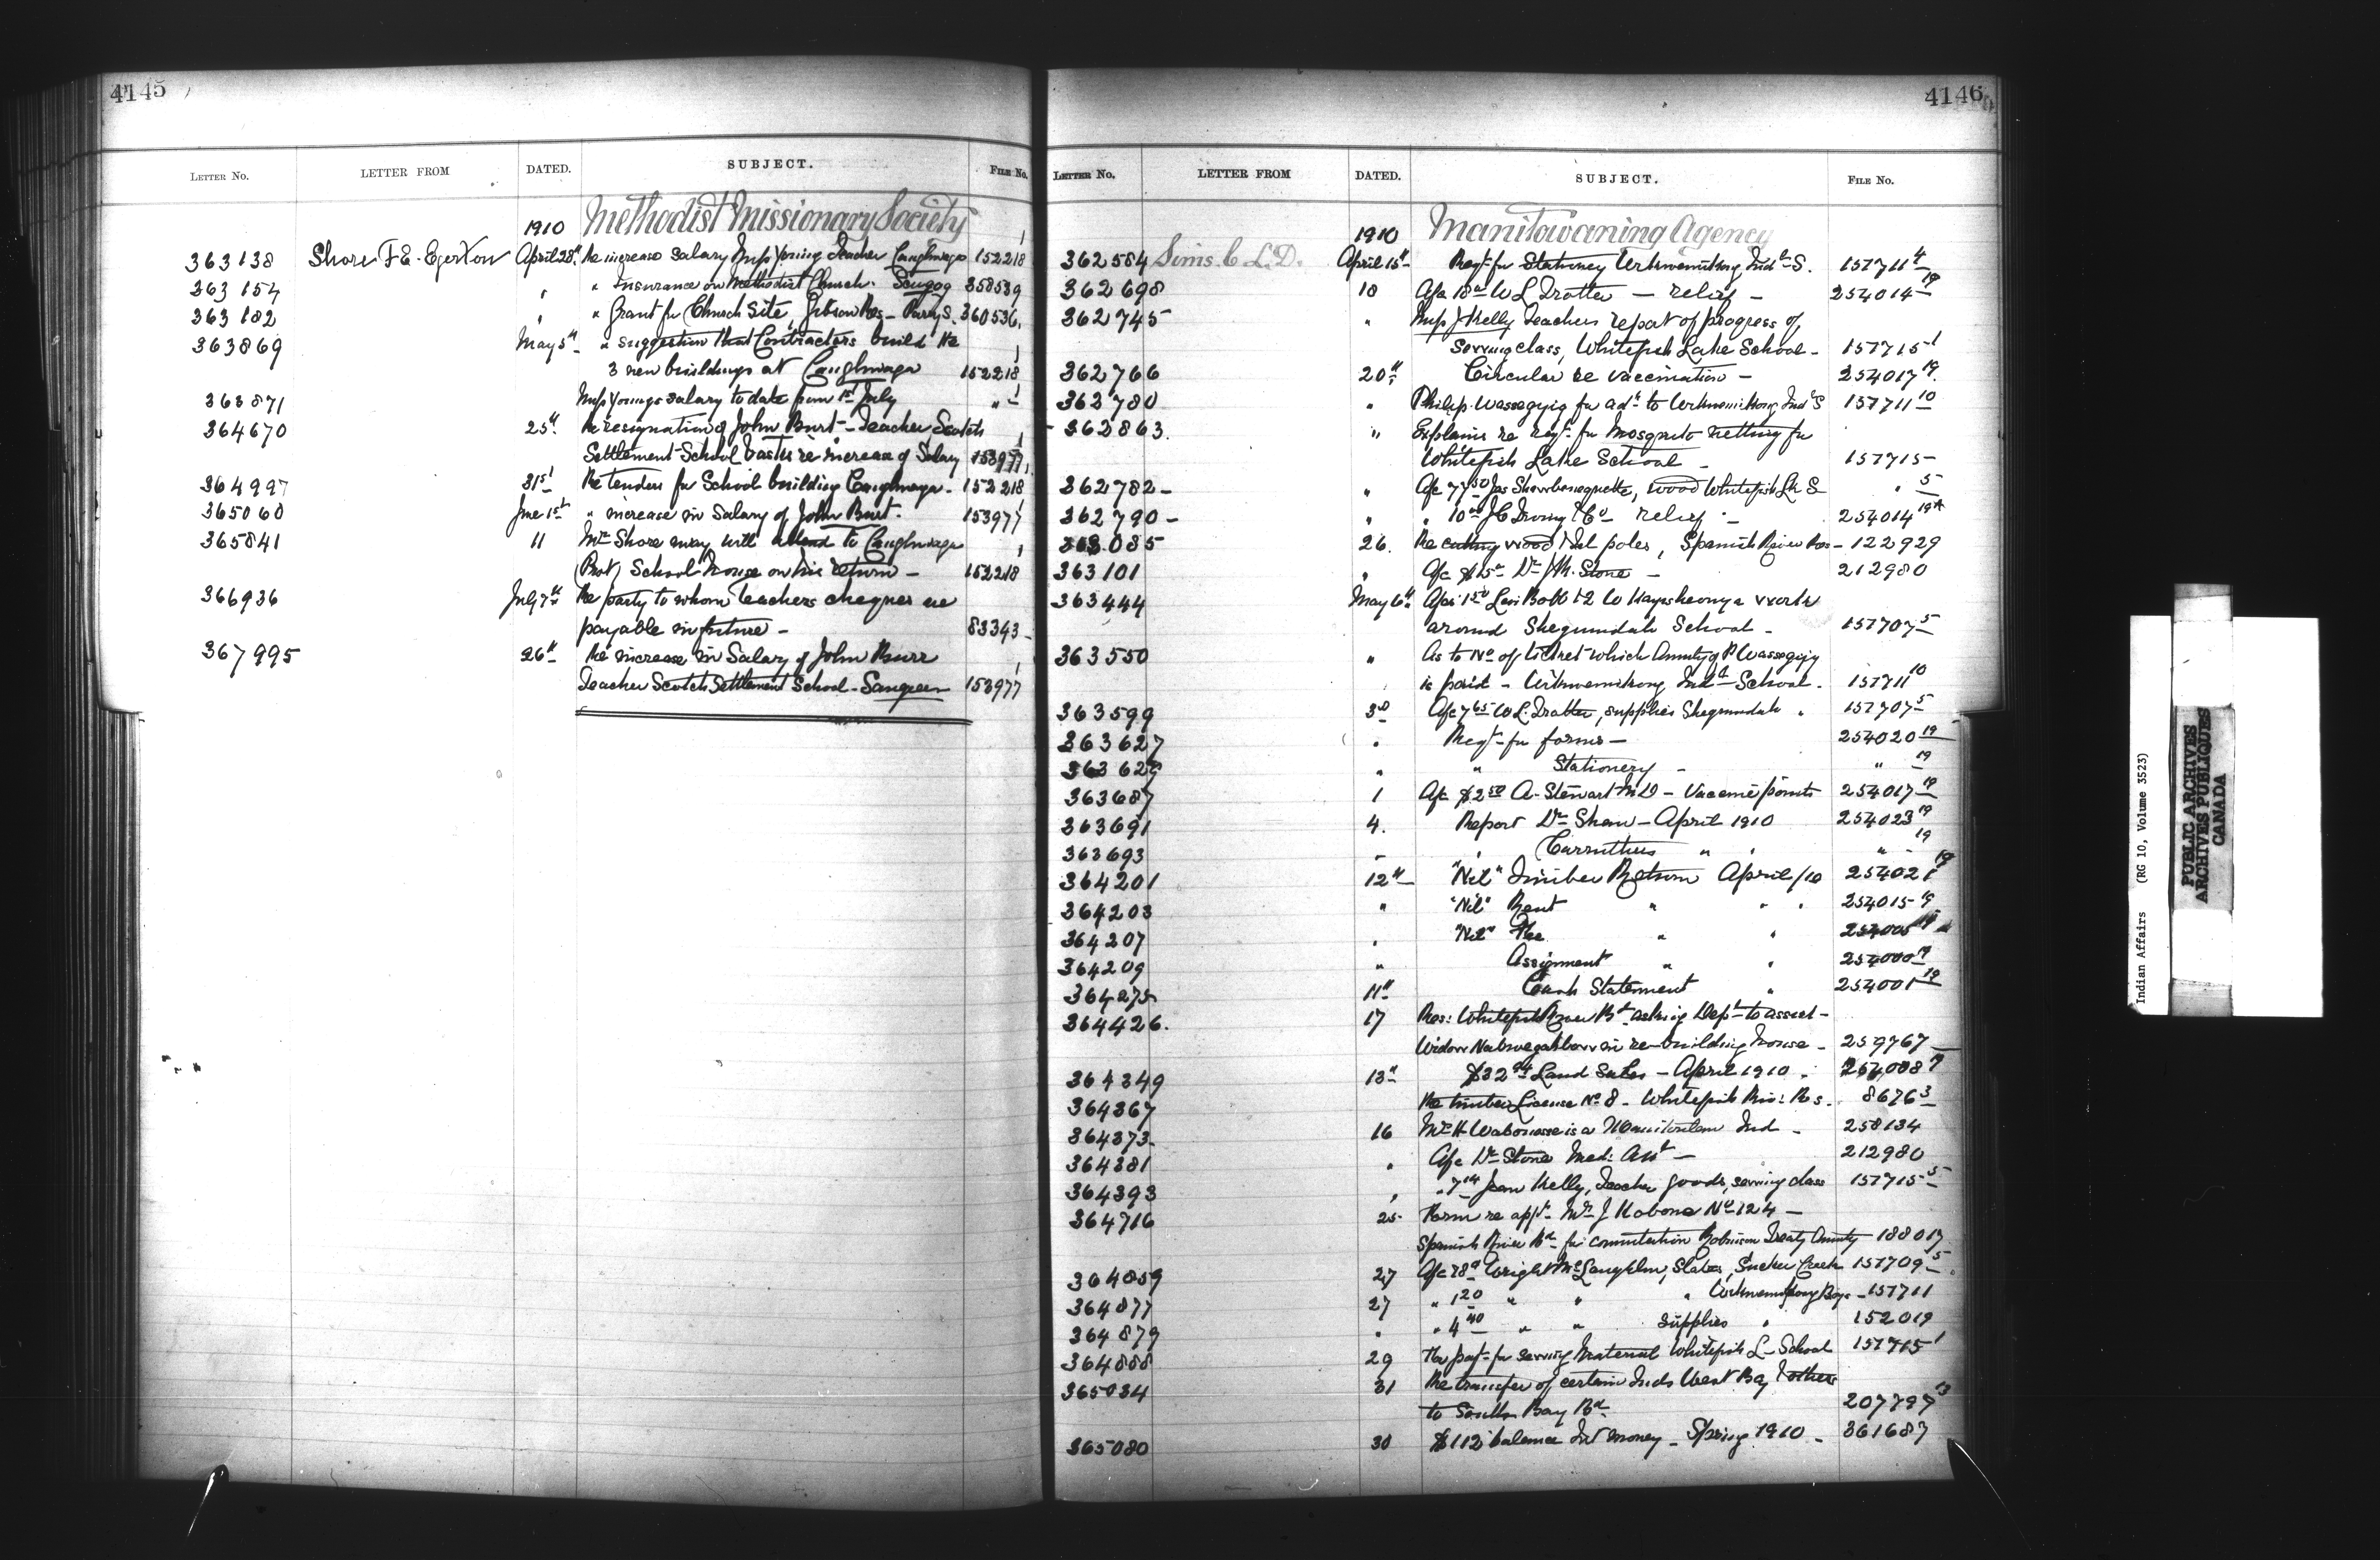 4145
LETTER No. LETTER FROM DATED. SUBJECT. FILE No.
1910 Methodist Missionary Society
363138 Shore F E. Egerton April 28th Re increase Salary Miss Young Teacher Caughnaga 152218 1
363154 " " Insurance on Methodist Church Scugog 358539
363182 " " Grant for Church Site, Gibson Res - Parry S. 360536
363869 May 5th " suggestion that Contractors build the
3 new buildings at Caughnaga 152218 1
363871 Miss Youngs salary to date from 1st July " 1
364670 25th Re resignation of John Burt - Teacher Scotch
Settlement School &as to re increase of Salary 153977 1
364997 31st Re tenders for School building Caughnaga - 152218 1
365060 June 1st " increase in Salary of John Burt. 153977 1
365841 11 Mr Shore may will attend to Caughnaga
(Prot) School House on his return - 152218 1
366936 July 7th Re party to whom teachers cheques are
payable in future - 83343
367995 26th Re increase in Salary of John Burr
Teacher Scotch Settlement School - Saugeen 153977 1
4146
LETTER No. LETTER FROM DATED. SUBJECT. FILE No.
1910 Manitowaning Agency
362584 Sims. C L. D. April 15th Reqt for Stationery Wikwemikong Indl S. 157711 4
362698 18 Afc 18 00 W L Trotter - relief - 254014 19
362745 " Miss J Kelly Teachers report of progress of
sewing class, Whitefish Lake School - 157715 1
362766 20th Circular re vaccination - 254017 19
362780 " Philip Wassegijig for adn to Wikwemikong Indl S 157711 10
362863 " Explains re reqt for Mosquito netting for
Whitefish Lake School - 157715
362782 - " Afc 77 50 Jas Shawbenoquette, wood Whitefish Lk S " 5
362790 - " " 10 00 J C Irving & Co relief - 254014 19
363085 26. Re cutting wood & tel poles, Spanish River Res - 122929
363101 " Afc $15 00 Dr J M. Stone - 212980
363444 May 6th Afcs 1 50 Levi Bobb & 2 W work
around Shegumdah School - 157707 5
363550 " As to No of ticket which Annuity of P Wassegijig
is paid - Wikwemikong Indl School - 157711 10
363599 3rd Afc 7 65 W L. Trotter, supplies Shegumdah " 157707 5
363627 " Reqt for forms - 254020 19
363629 " " Stationery - " 19
363687 1 Afc $2 50 A. Stewart M D - Vaccine points 254017 19
363691 4. Report Dr Shaw - April 1910 254023 19
363693 " " Carruthers " " " 19
364201 12th "Nil" Timber Return April/10 254021 19
364203 " "Nil" Rent " " " 254015 19
364207 " "Nil" Fee " " 254005 19
364209 " Assignment " " 254000 19
364275 11th Cash Statement " 254001 19
364426. 17 Res: Whitefish River Bd asking Dept to assist -
Widow in re-building house - 259767
364349 13th $32 94 Land Sales - April 1910 - 254008 19
364367 Re timber License No 8 - Whitefish Riv: Res. 8676 3
364373 16 Mr H Wabonosse is a Manitoulin Ind - 258134
364381 " Afc Dr Stone Med: Att - 212980
364393 " " 7 14 Jean Kelly, Teacher goods, sewing class 157715 5
364716 25 Form re appt - Mr J Kabona No 124 -
Spanish River Bd for commutation Robinson Treaty Annuity 188017
364859 27 Afc 28 Wright McLaughlin, Slates, Sucker Creek 157709 5
364877 27 " 1 20 " " " Wikwemikong Boys - 157711
364879 " " 4 40 " " supplies " 152019
364888 29 for sewing material Whitefish L - School 157715 1
365034 31 Re transfer of certain Inds West Bay & others
to South Bay Bd 207797 13
365080 30 $112 balance Int money - Spring 1910 - 361687
Indian Affairs (RG 10, Volume 3523)
PUBLIC ARCHIVES
ARCHIVES PUBLIQUES
CANADA